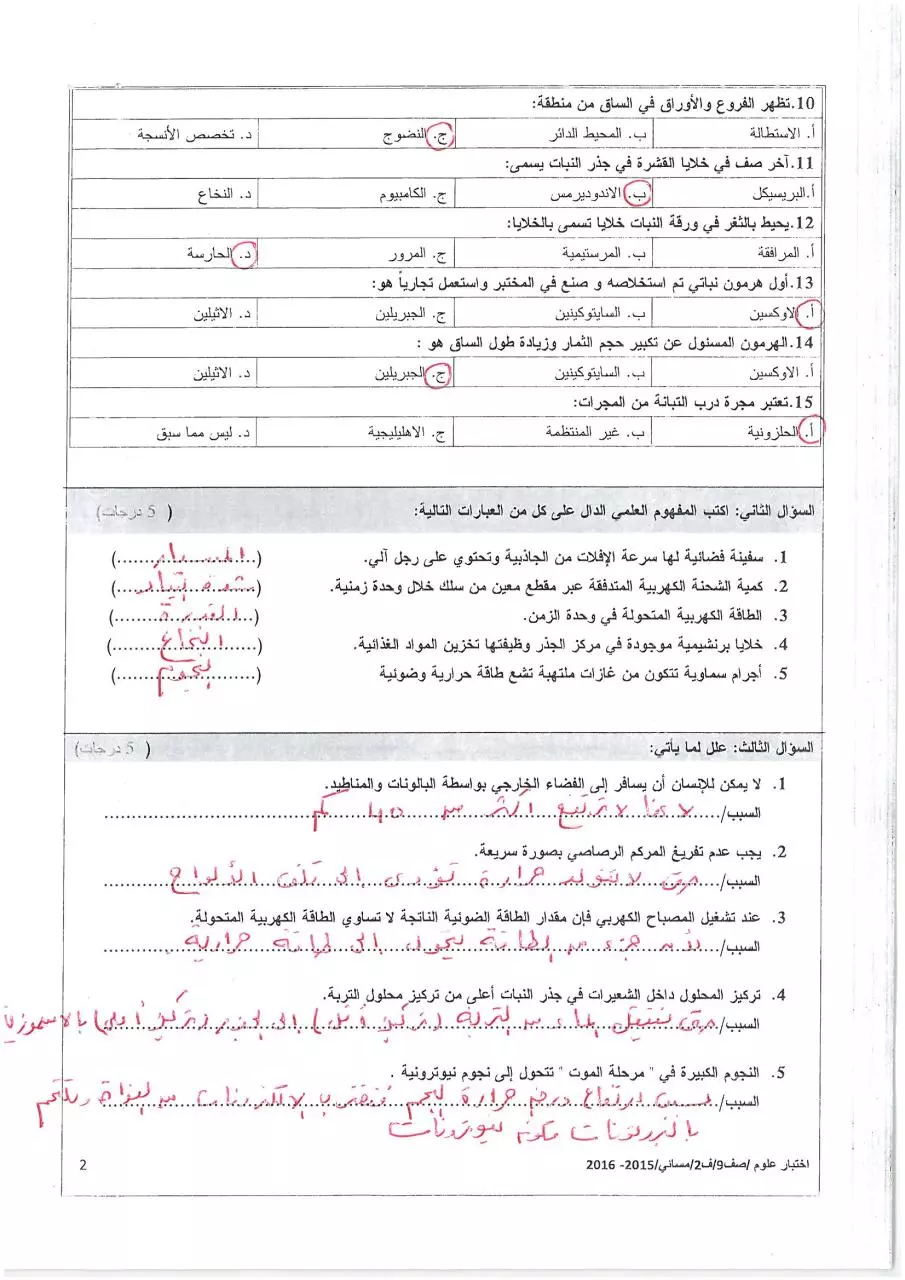 10.تظهر الفروع والأوراق في الساق من منطقة:
أ. الاستطالة ب. المحيط الدائر ج. النضوج د. تخصص الأنسجة
11.آخر صف في خلايا القشرة في جذر النبات يسمى:
أ.البريسيكل ب. الاندوديرمس ج. الكامبيوم د. النخاع
12.يحيط بالثغر في ورقة النبات خلايا تسمى بالخلايا:
أ. المرافقة ب. المرستيمية ج. المرور د. الحارسة
13.أول هرمون نباتي تم استخلاصه و صنع في المختبر واستعمل تجارياً هو:
أ. الاوكسين ب. السايتوكينين ج. الجبريلين د. الاثيلين
14.الهرمون المسئول عن تكبير حجم الثمار وزيادة طول الساق هو :
أ. الاوكسين ب. السايتوكينين ج. الجبريلين د. الاثيلين
15.تعتبر مجرة درب التبانة من المجرات:
أ. الحلزونية ب. غير المنتظمة ج. الاهليليجية د. ليس مما سبق
السؤال الثاني: اكتب المفهوم العلمي الدال على كل من العبارات التالية: ( 5 درجات)
1. سفينة فضائية لها سرعة الإفلات من الجاذبية وتحتوي على رجل آلي. (المسبار)
2. كمية الشحنة الكهربية المتدفقة عبر مقطع معين من سلك خلال وحدة زمنية. (شدة التيار)
3. الطاقة الكهربية المتحولة في وحدة الزمن. (القدرة)
4. خلايا برنشيمية موجودة في مركز الجذر وظيفتها تخزين المواد الغذائية. (النخاع)
5. أجرام سماوية تتكون من غازات ملتهبة تشع طاقة حرارية وضوئية (النجوم)
السؤال الثالث: علل لما يأتي: ( 5 درجات)
1. لا يمكن للإنسان أن يسافر إلى الفضاء الخارجي بواسطة البالونات والمناطيد.
السبب/ لانها لا ترتفع اكثر من كم
2. يجب عدم تفريغ المركم الرصاصي بصورة سريعة.
السبب/ حتى لا تتولد حرارة تؤدي إلى تلف الألواح
3. عند تشغيل المصباح الكهربي فإن مقدار الطاقة الضوئية الناتجة لا تساوي الطاقة الكهربية المتحولة.
السبب/ لأن جزء من الطاقة يتحول إلى طاقة حرارية
4. تركيز المحلول داخل الشعيرات في جذر النبات أعلى من تركيز محلول التربة.
السبب/ حتى ينتقل الماء من التربة (تركيز أقل) إلى الجذر (تركيز أعلى) بالاسموزية
5. النجوم الكبيرة في " مرحلة الموت " تتحول إلى نجوم نيوترونية .
السبب/ بسبب ارتفاع درجة حرارة النجم فتقترب الالكترونات من النواة وتلتحم
بالبروتونات مكونة نيوترونات
اختبار علوم /صف9/ف2/مسائي/2015- 2016 2